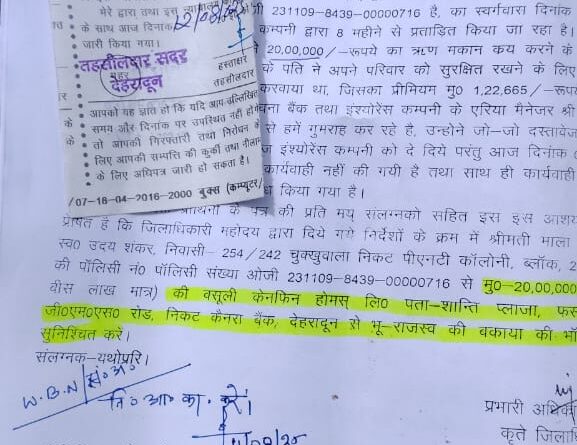 मेरे द्वारा तथा इस न्यायालय
के साथ आज दिनांक 12/08/25
जारी किया गया।
तहसीलदार सदर
देहरादून
हस्ताक्षर
तहसीलदार
आपको यह ज्ञात हो कि यदि आप उल्लिखित
समय और दिनांक पर उपस्थित नहीं होंगे
तो आपकी गिरफ्तारी तथा निरोधन के
लिए आपकी सम्पत्ति की कुर्की तथा नीलाम
के लिए अधिपत्र जारी हो सकता है।
/07-18-04-2016-2000 बुक्स (कम्प्यूटर/
231109-8439-00000716 है, का स्वर्गवास दिनांक
कम्पनी द्वारा 8 महीने से प्रताड़ित किया जा रहा है।
20,00,000/-रूपये का ऋण मकान कय करने के
के पति ने अपने परिवार को सुरक्षित रखने के लिए
करवाया था, जिसका प्रीमियम मु0 1,22,665/-रूपये
बैंक तथा इंश्योरेंस कम्पनी के एरिया मैनेजर श्री
से हमें गुमराह कर रहे है, उन्होने जो-जो दस्तावेज
इंश्योरेंस कम्पनी को दे दिये परंतु आज दिनांक
कार्यवाही नहीं की गयी है तथा साथ ही कार्यवाही
किया गया है।
के पत्र की प्रति मय संलग्नको सहित इस इस आशय
प्रेषित है कि जिलाधिकारी महोदय द्वारा दिये गये निर्देशों के क्रम में श्रीमती माला
स्व0 उदय शंकर, निवासी- 254/242 चुक्खुवाला निकट पीएनटी कॉलोनी, ब्लॉक, 2
की पॉलिसी नं0 पॉलिसी संख्या ओजी 231109-8439-00000716 से मु0-20,00,000
बीस लाख मात्र) की वसूली केनफिन होमस् लि0 पता-शान्ति प्लाजा, फस
जी0एम0एस0 रोड, निकट कैनरा बैंक, देहरादून से भू-राजस्व की बकाया की भाँ
सुनिश्चित करें।
संलग्नक-यथोपरि।
W.B.N
नि0 आ0 का0 करें।
प्रभारी अधिका
कृते जिला